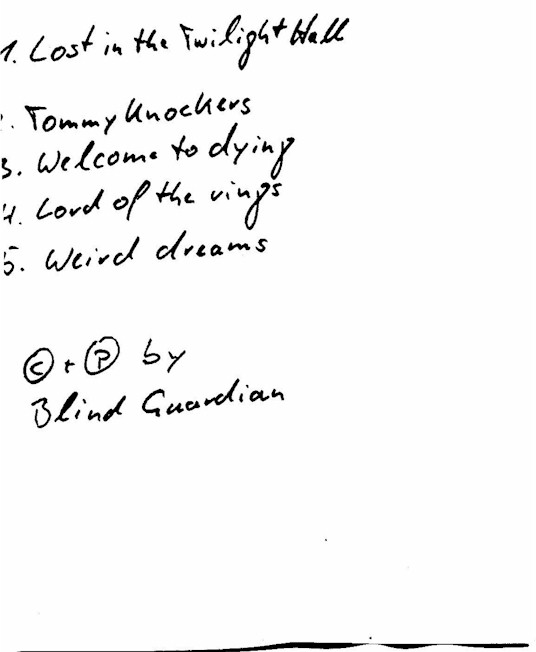 1. Lost in the Twilight Hall
2. Tommy Knockers
3. Welcome to dying
4. Lord of the rings
5. Weird dreams
© + ℗ by
Blind Guardian